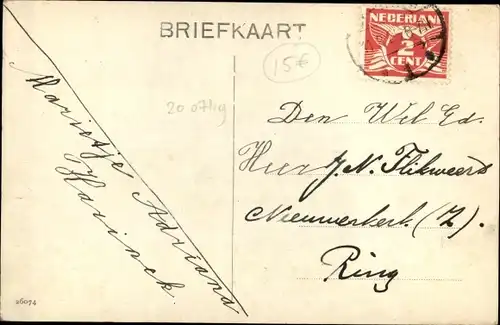 BRIEFKAART
NEDERLAND
2
CENT
15€
20 07 kg
Den Wel Ed.
Heer J. N. Flikweert
Nieuwerkerk (Z.)
Ring
Marietje Adriana
Harinck.
26074